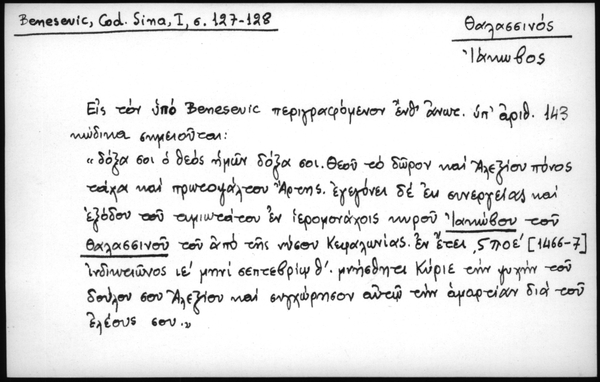 Benesevic, Cod. Sina, I, σ. 127-128
Θαλασσινός
Ἰάκωβος
Εἰς τόν ὑπό Benesevic περιγραφόμενον ἔνθ' ἄνωτ. ὑπ' ἀριθ. 143
κώδικα σημειοῦται:
«δόξα σοι ὁ θεός ἡμῶν δόξα σοι. Θεοῦ τό δῶρον καί Ἀλεξίου πόνος
τάχα καί πρωτοψάλτου Ἄρτης. ἐγεγόνει δέ ἐκ συνεργείας καί
ἐξόδου τοῦ τιμιωτάτου ἐν ἱερομονάχοις κυροῦ Ἰακώβου τοῦ
Θαλασσινοῦ τοῦ ἀπό τῆς νήσου Κεφαλωνίας. Ἐν ἔτει ,ςϠοε' [1466-7]
ἰνδικτιῶνος ιε' μηνί σεπτεβρίῳ θ'. μνήσθητι Κύριε τήν ψυχήν τοῦ
δούλου σου Ἀλεξίου καί συγχώρησον αὐτῷ τήν ἁμαρτίαν διά τοῦ
ἐλέους σου.»